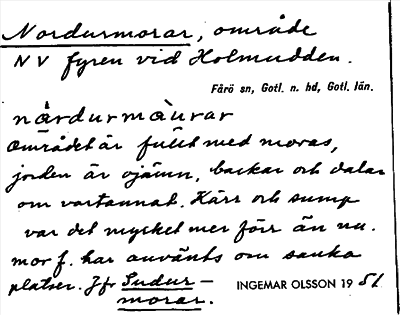 Nordurmorar, område
NV fyren vid Holmudden.
Fårö sn, Gotl. n. hd, Gotl. län.
nårdurmàurar
området är fullt med moras,
jorden är ojämn, backar och dalar
om vartannat. Kärr och sump
var det mycket mer förr än nu.
mor f. har använts om sanka
platser. Jfr Sudur-
morar.
INGEMAR OLSSON 1951